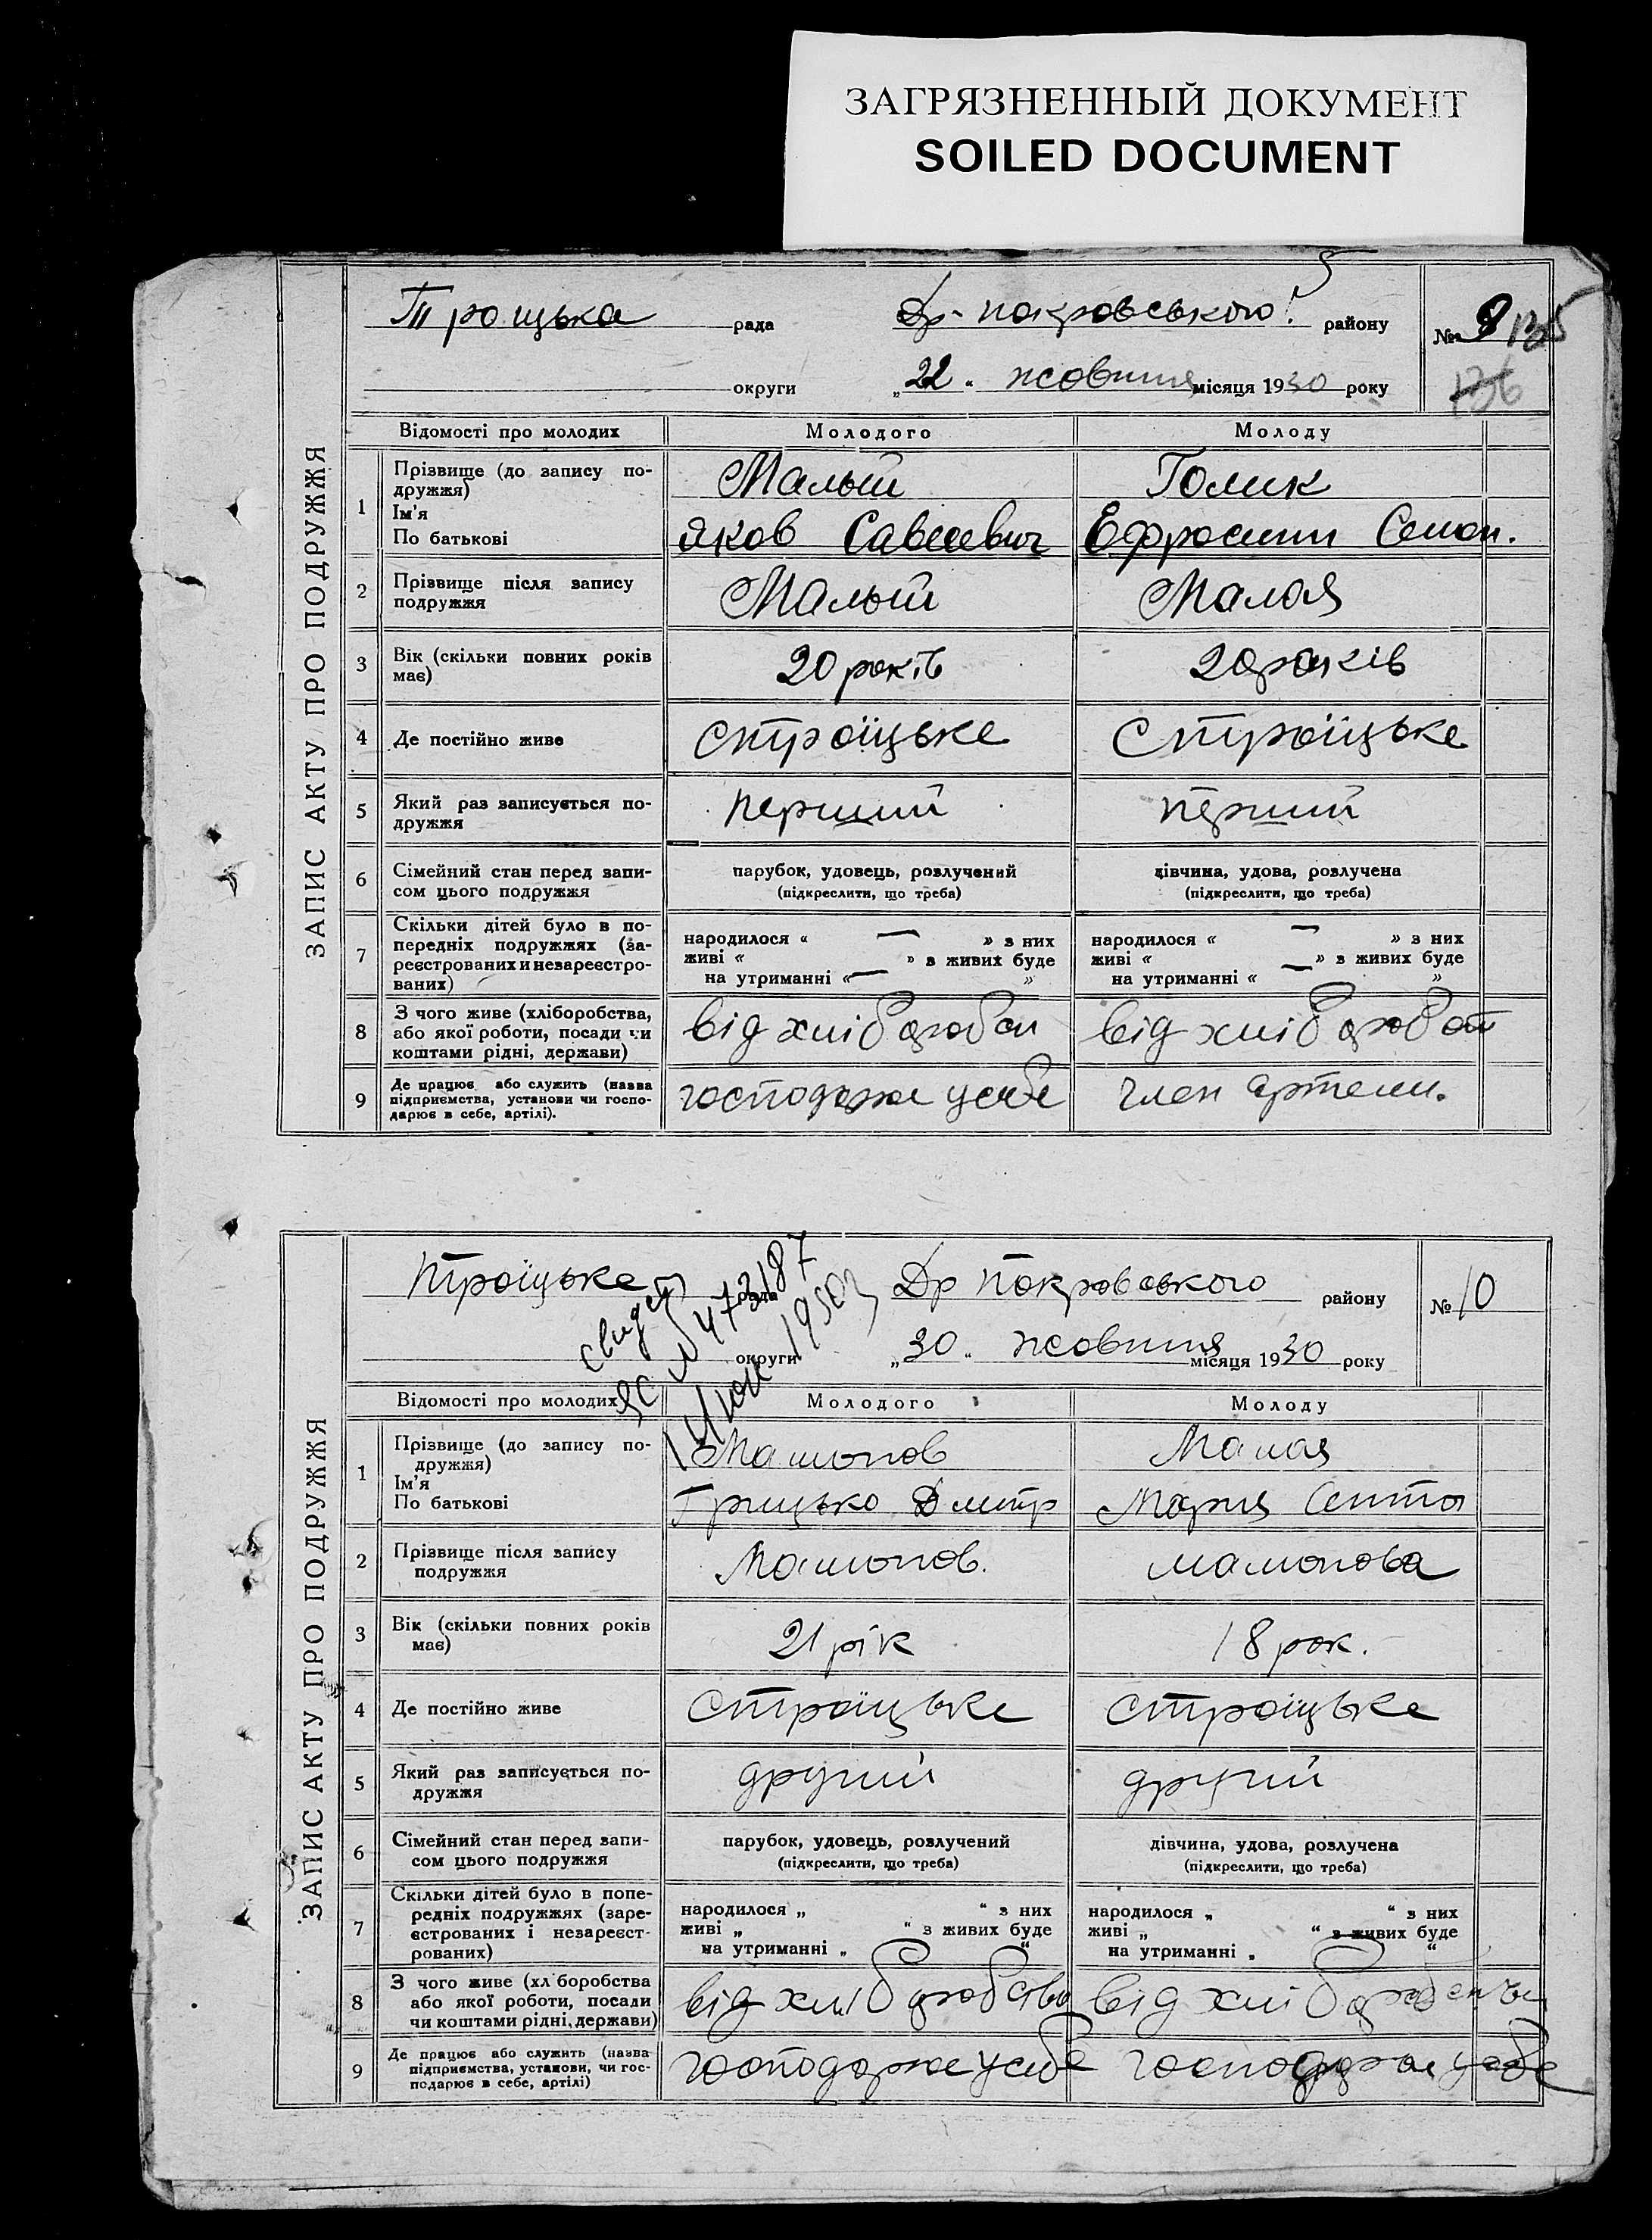 ЗАГРЯЗНЕННЫЙ ДОКУМЕНТ
SOILED DOCUMENT
ЗАПИС АКТУ ПРО ПОДРУЖЖЯ
Троцька рада Др-покровського району № 9 125
округи „22“ жовтня місяця 1930 року 136
Відомості про молодих Молодого Молоду
1 Прізвище (до запису по-
дружжя) Малый Голик
Ім'я
По батькові Яков Савеевич Ефросини Семон.
2 Прізвище після запису
подружжя Малый Малая
3 Вік (скільки повних років
має) 20 років 20 років
4 Де постійно живе строїцьке Строїцьке
5 Який раз записується по-
дружжя перший перший
6 Сімейний стан перед запи-
сом цього подружжя
парубок, удовець, розлучений дівчина, удова, розлучена
(підкреслити, що треба) (підкреслити, що треба)
7 Скільки дітей було в по-
передніх подружжях (за-
реєстрованих и незареєстро-
ваних)
народилося « — » з них народилося « — » з них
живі « » з живих буде живі « » з живих буде
на утриманні « — » на утриманні « — »
8 З чого живе (хліборобства,
або якої роботи, посади чи
коштами рідні, держави)
від хліборобси від хліборобст
9 Де працює або служить (назва
підприємства, установи чи госпо-
дарює в себе, артілі).
господарює усебе член артели.
ЗАПИС АКТУ ПРО ПОДРУЖЖЯ
Троїцьке рада Др Покровського району № 10
округи „30“ жовтня місяця 1930 року
свидет
ЯС № 473187
14 1950г
Відомості про молодих Молодого Молоду
1 Прізвище (до запису по-
дружжя) Мамонов Малая
Ім'я
По батькові Грицько Дмитр Мария
2 Прізвище після запису
подружжя Мамонов. мамонова
3 Вік (скільки повних років
має) 21 рік 18 рок.
4 Де постійно живе строїцьке строїцьке
5 Який раз записується по-
дружжя другий другий
6 Сімейний стан перед запи-
сом цього подружжя
парубок, удовець, розлучений дівчина, удова, розлучена
(підкреслити, що треба) (підкреслити, що треба)
7 Скільки дітей було в попе-
редніх подружжях (заре-
єстрованих і незареєст-
рованих)
народилося „ “ з них народилося „ “ з них
живі „ “ з живих буде живі „ “ з живих буде
на утриманні „ “ на утриманні „ “
8 З чого живе (хл боробства
або якої роботи, посади
чи коштами рідні, держави)
від хліборобства від
9 Де працює або служить (назва
підприємства, установи, чи гос-
подарює в себе, артілі)
господарює усебе господарює усебе